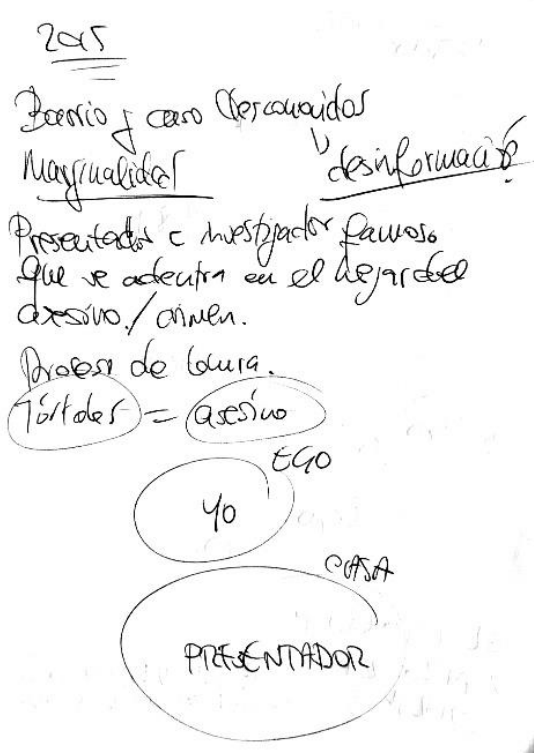 2015
Barrio y caso desconocidos
Marginalidad desinformació
Presentador e investigador famoso
que se adentra en el
asesino / crimen.
Proceso de locura.
= asesino
EGO
YO
CASA
PRESENTADOR